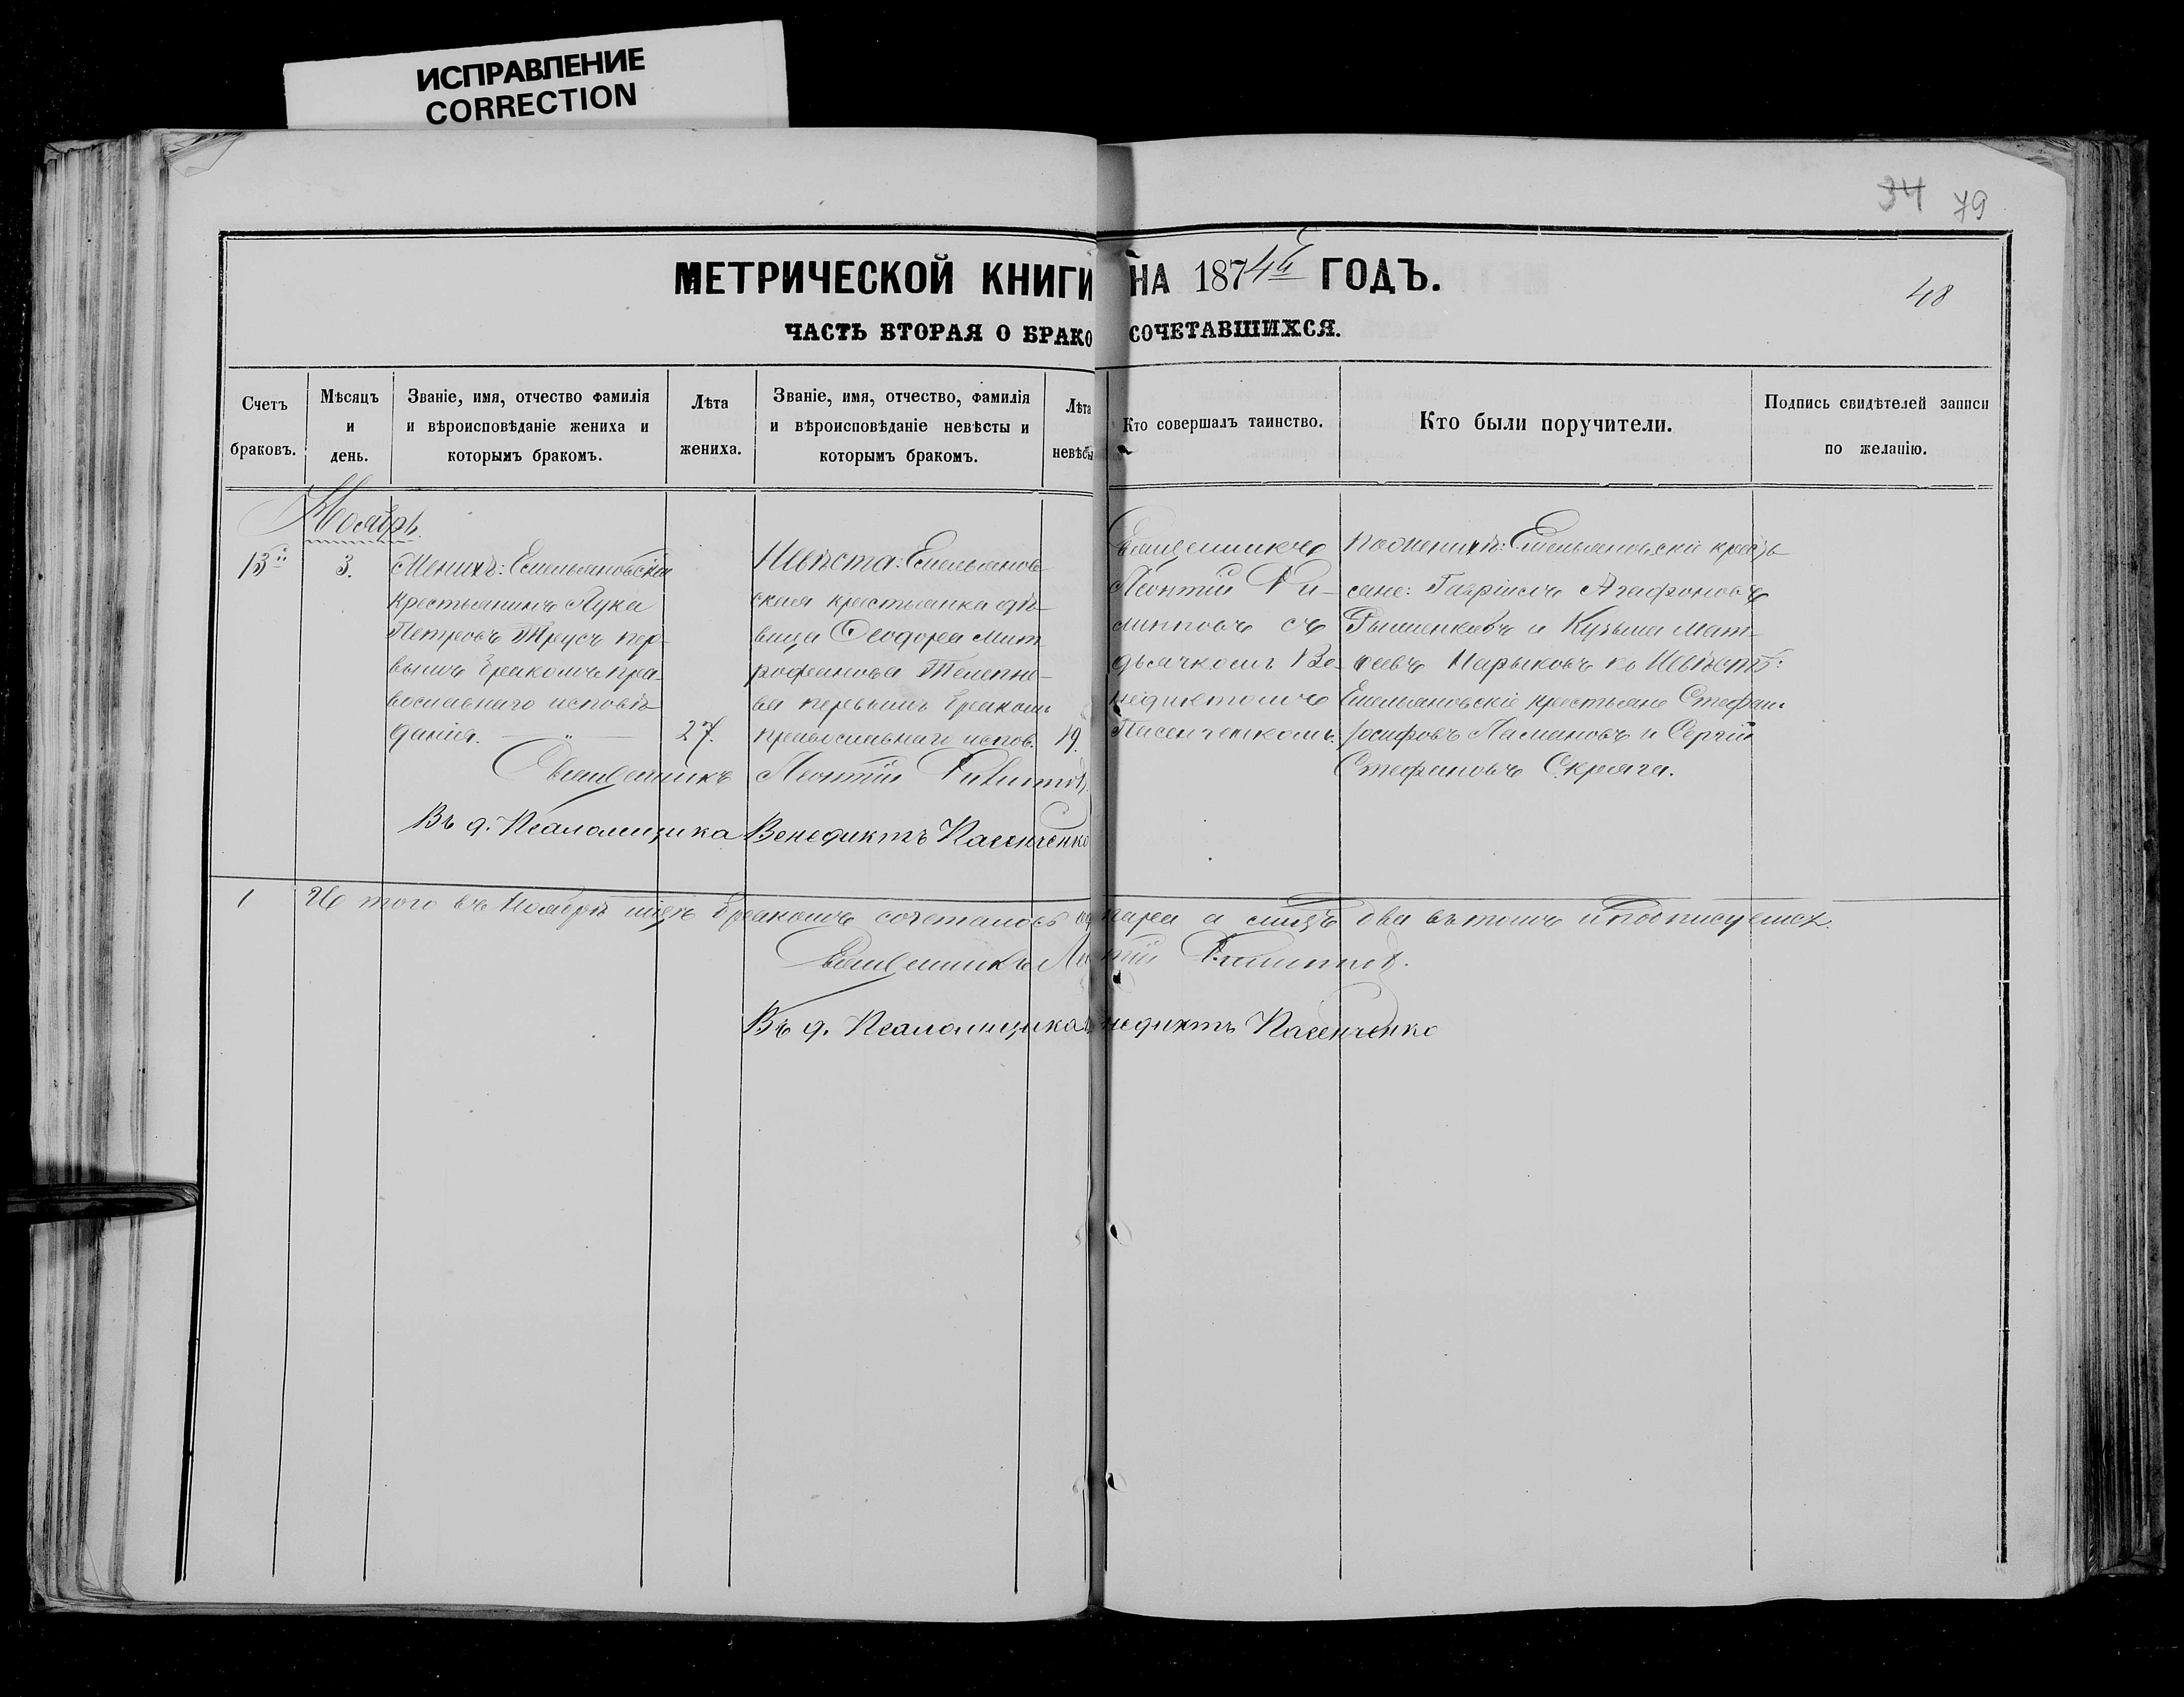 ИСПРАВЛЕНИЕ
CORRECTION
34 79
МЕТРИЧЕСКОЙ КНИГИ НА 1874й ГОДЪ.
48
ЧАСТЬ ВТОРАЯ О БРАКОСОЧЕТАВШИХСЯ.
Счетъ браковъ.
Мѣсяцъ и день.
Званіе, имя, отчество фамилія и вѣроисповѣданіе жениха и которымъ бракомъ.
Лѣта жениха.
Званіе, имя, отчество, фамилія и вѣроисповѣданіе невѣсты и которымъ бракомъ.
Лѣта невѣсы
Кто совершалъ таинство.
Кто были поручители.
Подпись свидѣтелей записи по желанію.
Ноябрь.
13й
3.
Женихъ: Емельяновскій
крестьянинъ Лука
Петровъ Трусъ пер-
вымъ бракомъ пра-
вославнаго исповѣ-
данія. — " —
27.
Невѣста: Емельянов-
ская крестьянка дѣ-
вица Ѳеодора Мит-
рофанова Телепне-
ва первымъ бракомъ
православнаго испов.
19.
Священникъ
Леонтій Фи-
липповъ съ
дьячкомъ Ве-
недиктомъ
Пасенченкомъ.
По Женихѣ: Емельяновскіе кресть-
яне: Гавріилъ Агафоновъ
и Кузьма Мат-
ѳеевъ Марыковъ по Невѣстѣ:
Емельяновскіе крестьяне Стефанъ
Іосифовъ и Сергій
Стефановъ Скряга.
Священникъ Леонтій Филиппов.
Въ д. Псаломщика Венедиктъ Пасенченко
1 Итого въ Ноябрѣ мцѣ бракомъ сочеталось пара а лицъ два въ томъ и подписуемся.
Священникъ Леонтій Филиппов.
Въ д. Псаломщика Венедиктъ Пасенченко